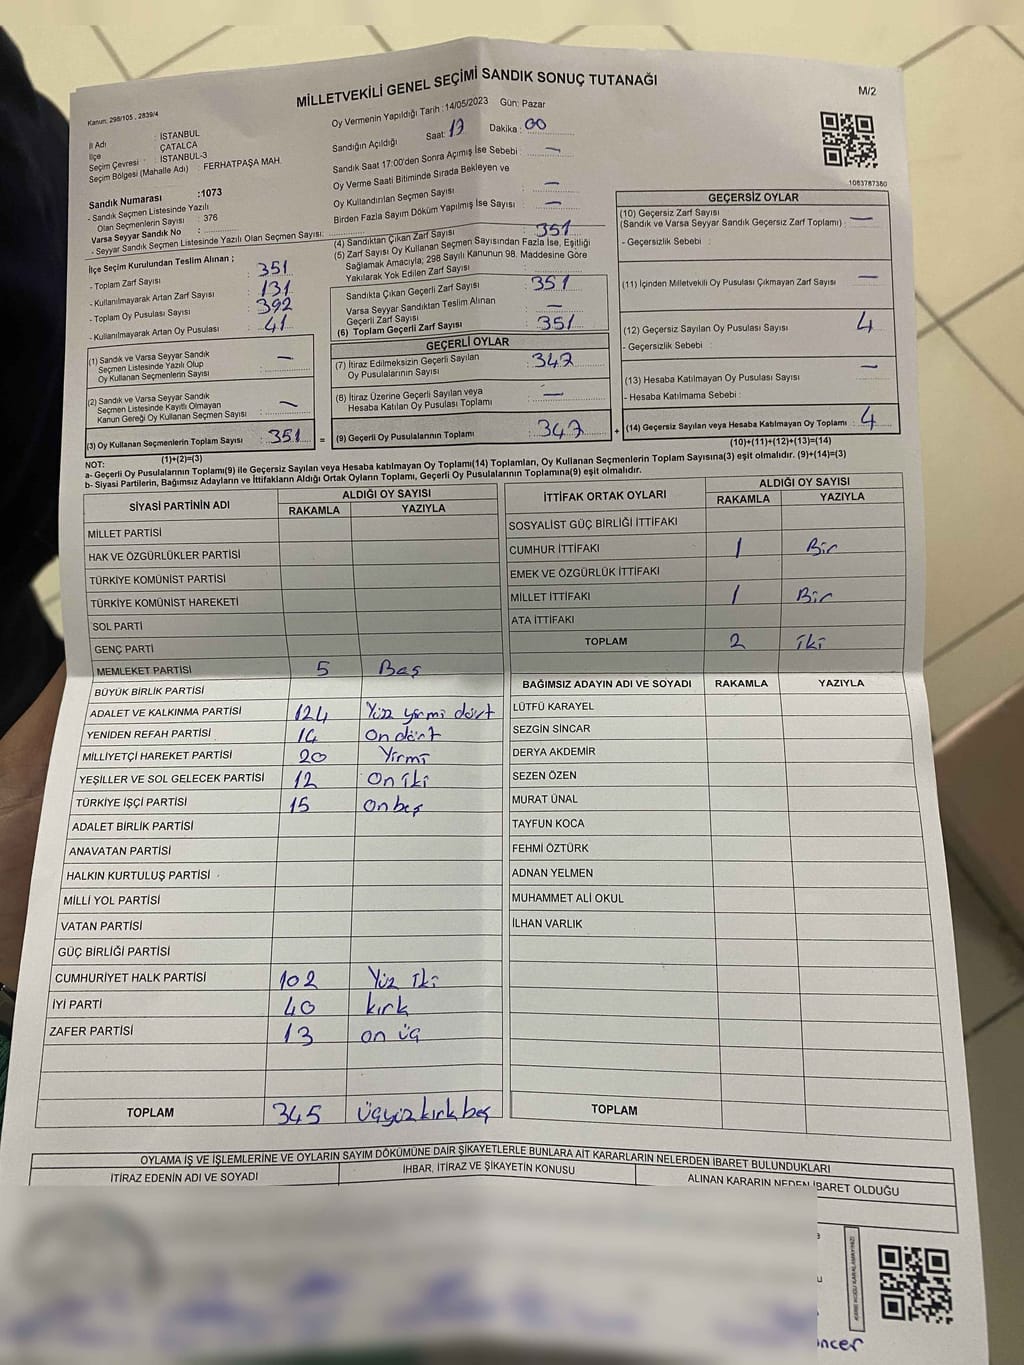 MİLLETVEKİLİ GENEL SEÇİMİ SANDIK SONUÇ TUTANAĞI
M/2
Kanun: 298/105 , 2839/4
İl Adı : İSTANBUL
İlçe : ÇATALCA
Seçim Çevresi : İSTANBUL-3
Seçim Bölgesi (Mahalle Adı) : FERHATPAŞA MAH.
Sandık Numarası :1073
- Sandık Seçmen Listesinde Yazılı
Olan Seçmenlerin Sayısı : 376
Varsa Seyyar Sandık No :
- Seyyar Sandık Seçmen Listesinde Yazılı Olan Seçmen Sayısı:
Oy Vermenin Yapıldığı Tarih : 14/05/2023 Gün: Pazar
Sandığın Açıldığı Saat: 17 Dakika : 00
Sandık Saat 17:00'den Sonra Açımış İse Sebebi : —
Oy Verme Saati Bitiminde Sırada Bekleyen ve
Oy Kullandırılan Seçmen Sayısı : —
Birden Fazla Sayım Döküm Yapılmış İse Sayısı : —
1083787380
İlçe Seçim Kurulundan Teslim Alınan ;
- Toplam Zarf Sayısı : 351
- Kullanılmayarak Artan Zarf Sayısı : 131
- Toplam Oy Pusulası Sayısı : 392
- Kullanılmayarak Artan Oy Pusulası : 41
(1) Sandık ve Varsa Seyyar Sandık
Seçmen Listesinde Yazılı Olup
Oy Kullanan Seçmenlerin Sayısı : —
(2) Sandık ve Varsa Seyyar Sandık
Seçmen Listesinde Kayıtlı Olmayan
Kanun Gereği Oy Kullanan Seçmen Sayısı : —
(3) Oy Kullanan Seçmenlerin Toplam Sayısı : 351 =
(1)+(2)=(3)
(4) Sandıktan Çıkan Zarf Sayısı : 351
(5) Zarf Sayısı Oy Kullanan Seçmen Sayısından Fazla İse, Eşitliği
Sağlamak Amacıyla; 298 Sayılı Kanunun 98. Maddesine Göre
Yakılarak Yok Edilen Zarf Sayısı :
Sandıkta Çıkan Geçerli Zarf Sayısı : 351
Varsa Seyyar Sandıktan Teslim Alınan
Geçerli Zarf Sayısı : —
(6) Toplam Geçerli Zarf Sayısı : 351
GEÇERLİ OYLAR
(7) İtiraz Edilmeksizin Geçerli Sayılan
Oy Pusulalarının Sayısı : 347
(8) İtiraz Üzerine Geçerli Sayılan veya
Hesaba Katılan Oy Pusulası Toplamı : —
(9) Geçerli Oy Pusulalarının Toplamı : 347 +
GEÇERSİZ OYLAR
(10) Geçersiz Zarf Sayısı
(Sandık ve Varsa Seyyar Sandık Geçersiz Zarf Toplamı) : —
- Geçersizlik Sebebi :
(11) İçinden Milletvekili Oy Pusulası Çıkmayan Zarf Sayısı : —
(12) Geçersiz Sayılan Oy Pusulası Sayısı : 4
- Geçersizlik Sebebi :
(13) Hesaba Katılmayan Oy Pusulası Sayısı : —
- Hesaba Katılmama Sebebi :
(14) Geçersiz Sayılan veya Hesaba Katılmayan Oy Toplamı : 4
(10)+(11)+(12)+(13)=(14)
NOT:
a- Geçerli Oy Pusulalarının Toplamı(9) ile Geçersiz Sayılan veya Hesaba katılmayan Oy Toplamı(14) Toplamları, Oy Kullanan Seçmenlerin Toplam Sayısına(3) eşit olmalıdır. (9)+(14)=(3)
b- Siyasi Partilerin, Bağımsız Adayların ve İttifakların Aldığı Ortak Oyların Toplamı, Geçerli Oy Pusulalarının Toplamına(9) eşit olmalıdır.
SİYASİ PARTİNİN ADI
ALDIĞI OY SAYISI
RAKAMLA YAZIYLA
MİLLET PARTİSİ
HAK VE ÖZGÜRLÜKLER PARTİSİ
TÜRKİYE KOMÜNİST PARTİSİ
TÜRKİYE KOMÜNİST HAREKETİ
SOL PARTİ
GENÇ PARTİ
MEMLEKET PARTİSİ 5 Beş
BÜYÜK BİRLİK PARTİSİ
ADALET VE KALKINMA PARTİSİ 124 Yüz yirmi dört
YENİDEN REFAH PARTİSİ 14 On dört
MİLLİYETÇİ HAREKET PARTİSİ 20 Yirmi
YEŞİLLER VE SOL GELECEK PARTİSİ 12 On iki
TÜRKİYE İŞÇİ PARTİSİ 15 on beş
ADALET BİRLİK PARTİSİ
ANAVATAN PARTİSİ
HALKIN KURTULUŞ PARTİSİ
MİLLİ YOL PARTİSİ
VATAN PARTİSİ
GÜÇ BİRLİĞİ PARTİSİ
CUMHURİYET HALK PARTİSİ 102 Yüz iki
İYİ PARTİ 40 kırk
ZAFER PARTİSİ 13 on üç
TOPLAM 345 üçyüzkırkbeş
İTTİFAK ORTAK OYLARI
ALDIĞI OY SAYISI
RAKAMLA YAZIYLA
SOSYALİST GÜÇ BİRLİĞİ İTTİFAKI
CUMHUR İTTİFAKI 1 Bir
EMEK VE ÖZGÜRLÜK İTTİFAKI
MİLLET İTTİFAKI 1 Bir
ATA İTTİFAKI
TOPLAM 2 iki
BAĞIMSIZ ADAYIN ADI VE SOYADI RAKAMLA YAZIYLA
LÜTFÜ KARAYEL
SEZGİN SİNCAR
DERYA AKDEMİR
SEZEN ÖZEN
MURAT ÜNAL
TAYFUN KOCA
FEHMİ ÖZTÜRK
ADNAN YELMEN
MUHAMMET ALİ OKUL
İLHAN VARLIK
TOPLAM
OYLAMA İŞ VE İŞLEMLERİNE VE OYLARIN SAYIM DÖKÜMÜNE DAİR ŞİKAYETLERLE BUNLARA AİT KARARLARIN NELERDEN İBARET BULUNDUKLARI
İTİRAZ EDENİN ADI VE SOYADI
İHBAR, İTİRAZ VE ŞİKAYETİN KONUSU
ALINAN KARARIN NEDEN İBARET OLDUĞU